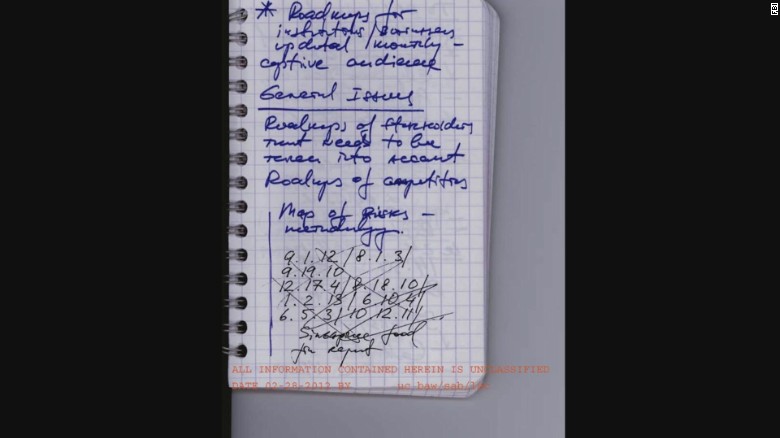 * Roadmaps for
institutions/businesses
updated monthly -
captive audience
General Issues
Roadmaps of stakeholders
that needs to be
taken into account
Roadmaps of competitors
Map of risks -
methodology.
9.1.12/8.1.3/
9.19.10
12.17.4/8.18.10/
1.2.13/6.10.4/
6.5.3/10.12.11/
food
for report
ALL INFORMATION CONTAINED HEREIN IS UNCLASSIFIED
DATE 02-28-2012 BY uc baw/sab/
FBI